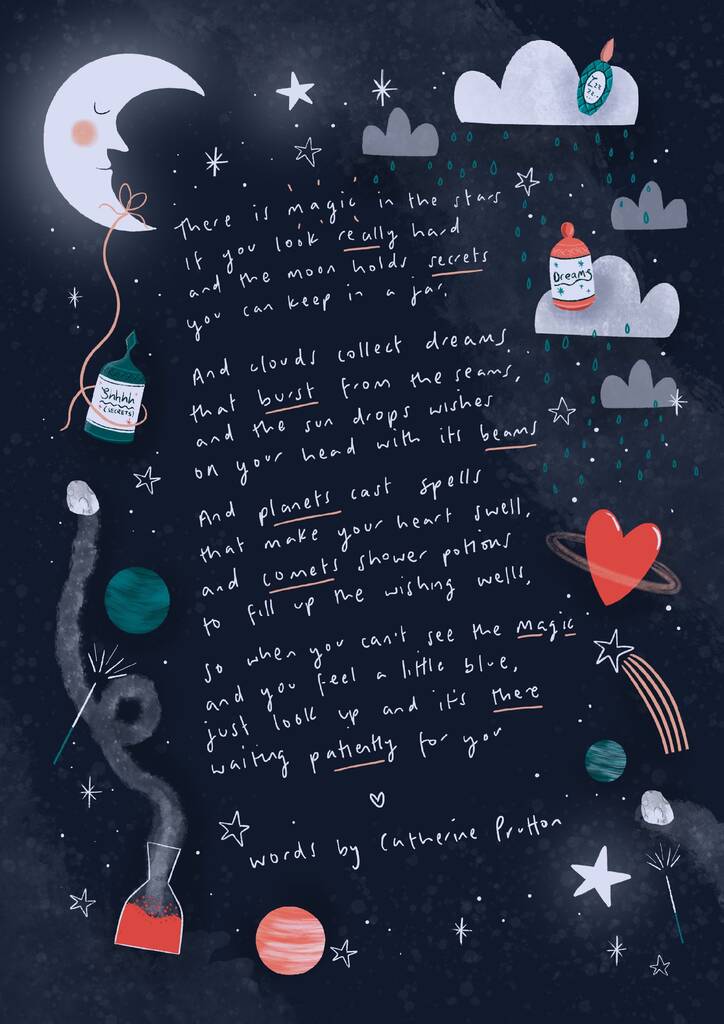 There is magic in the stars
If you look really hard
and the moon holds secrets
you can keep in a jar.
And clouds collect dreams
that burst from the seams,
and the sun drops wishes
on your head with its beams
And planets cast spells
that make your heart swell,
and comets shower potions
to fill up the wishing wells,
So when you can't see the magic
and you feel a little blue,
just look up and it's there
waiting patiently for you
words by Catherine Prutton
Shhhh
(SECRETS)
Dreams
Zzz
zz..